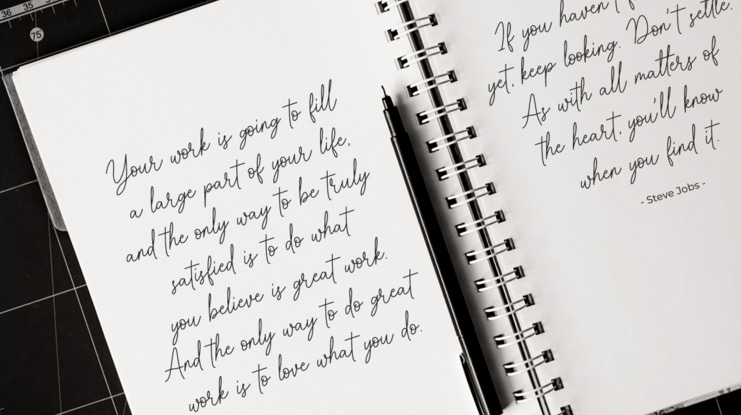 36
35
75
Your work is going to fill
a large part of your life,
and the only way to be truly
satisfied is to do what
you believe is great work.
And the only way to do great
work is to love what you do.
If you haven't
yet, keep looking. Don't settle.
As with all matters of
the heart, you'll know
when you find it.
- Steve Jobs -